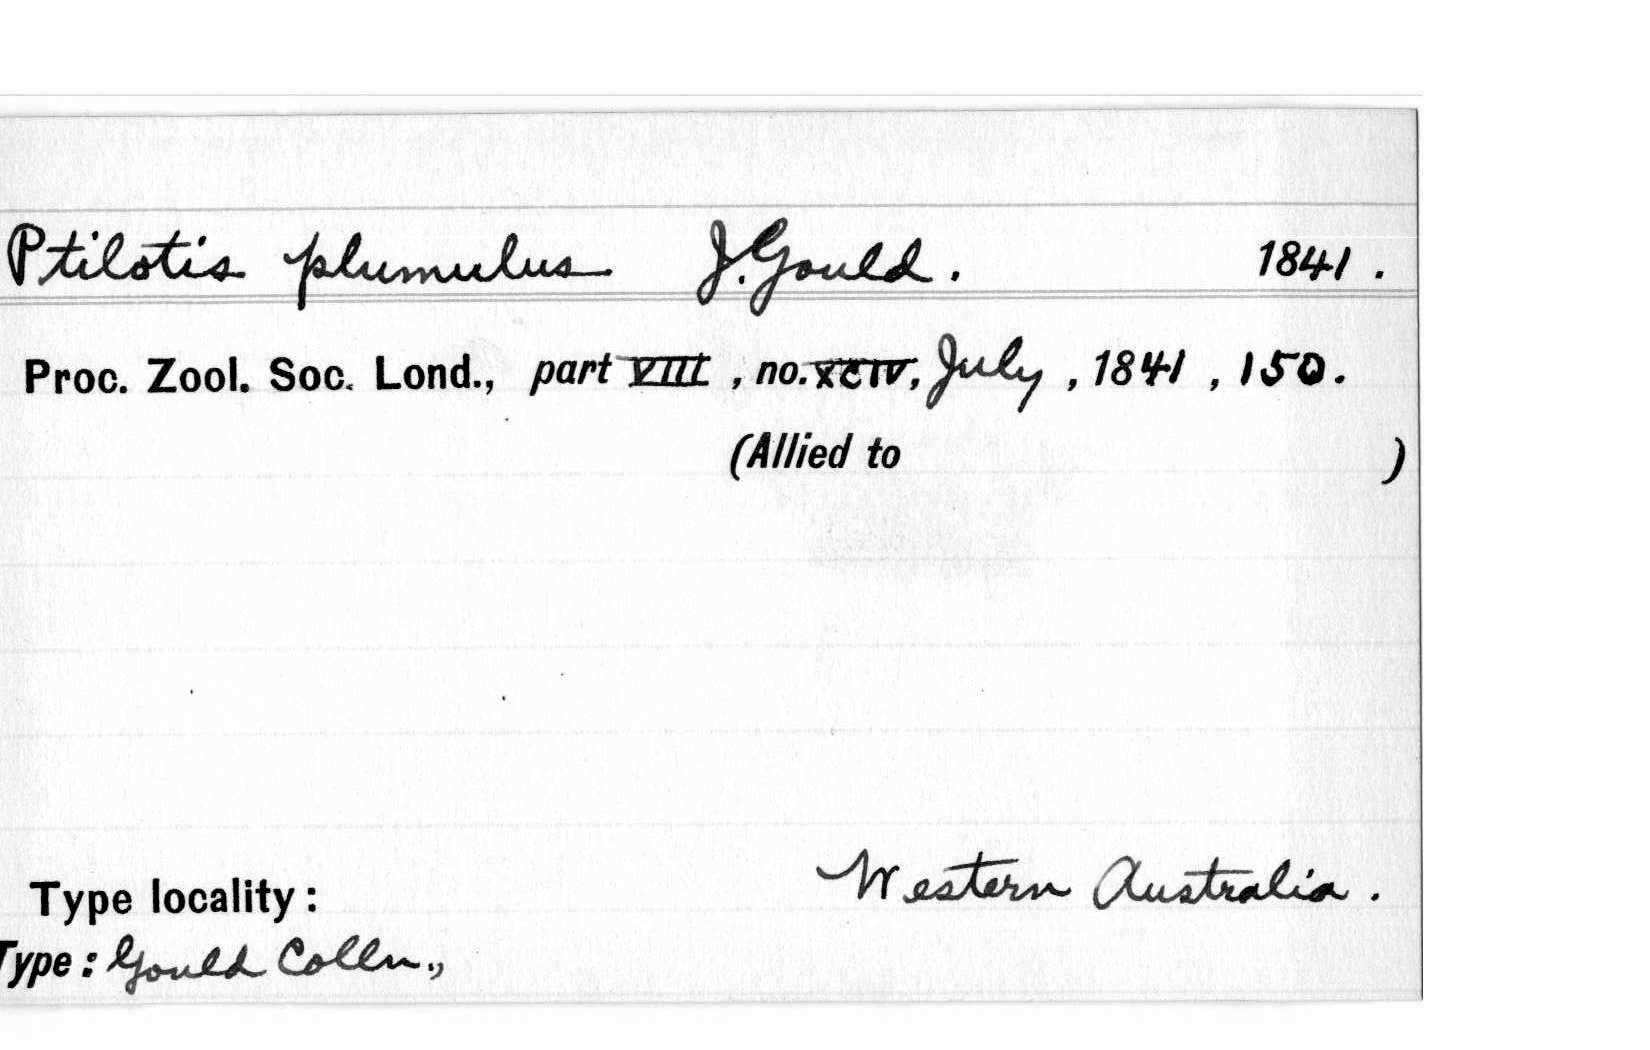 Ptilotis plumulus J. Gould. 1841.
Proc. Zool. Soc. Lond., part VIII, no. XCIV, July, 1841, 150.
(Allied to )
Type locality: Western Australia.
Type: Gould Colln.,